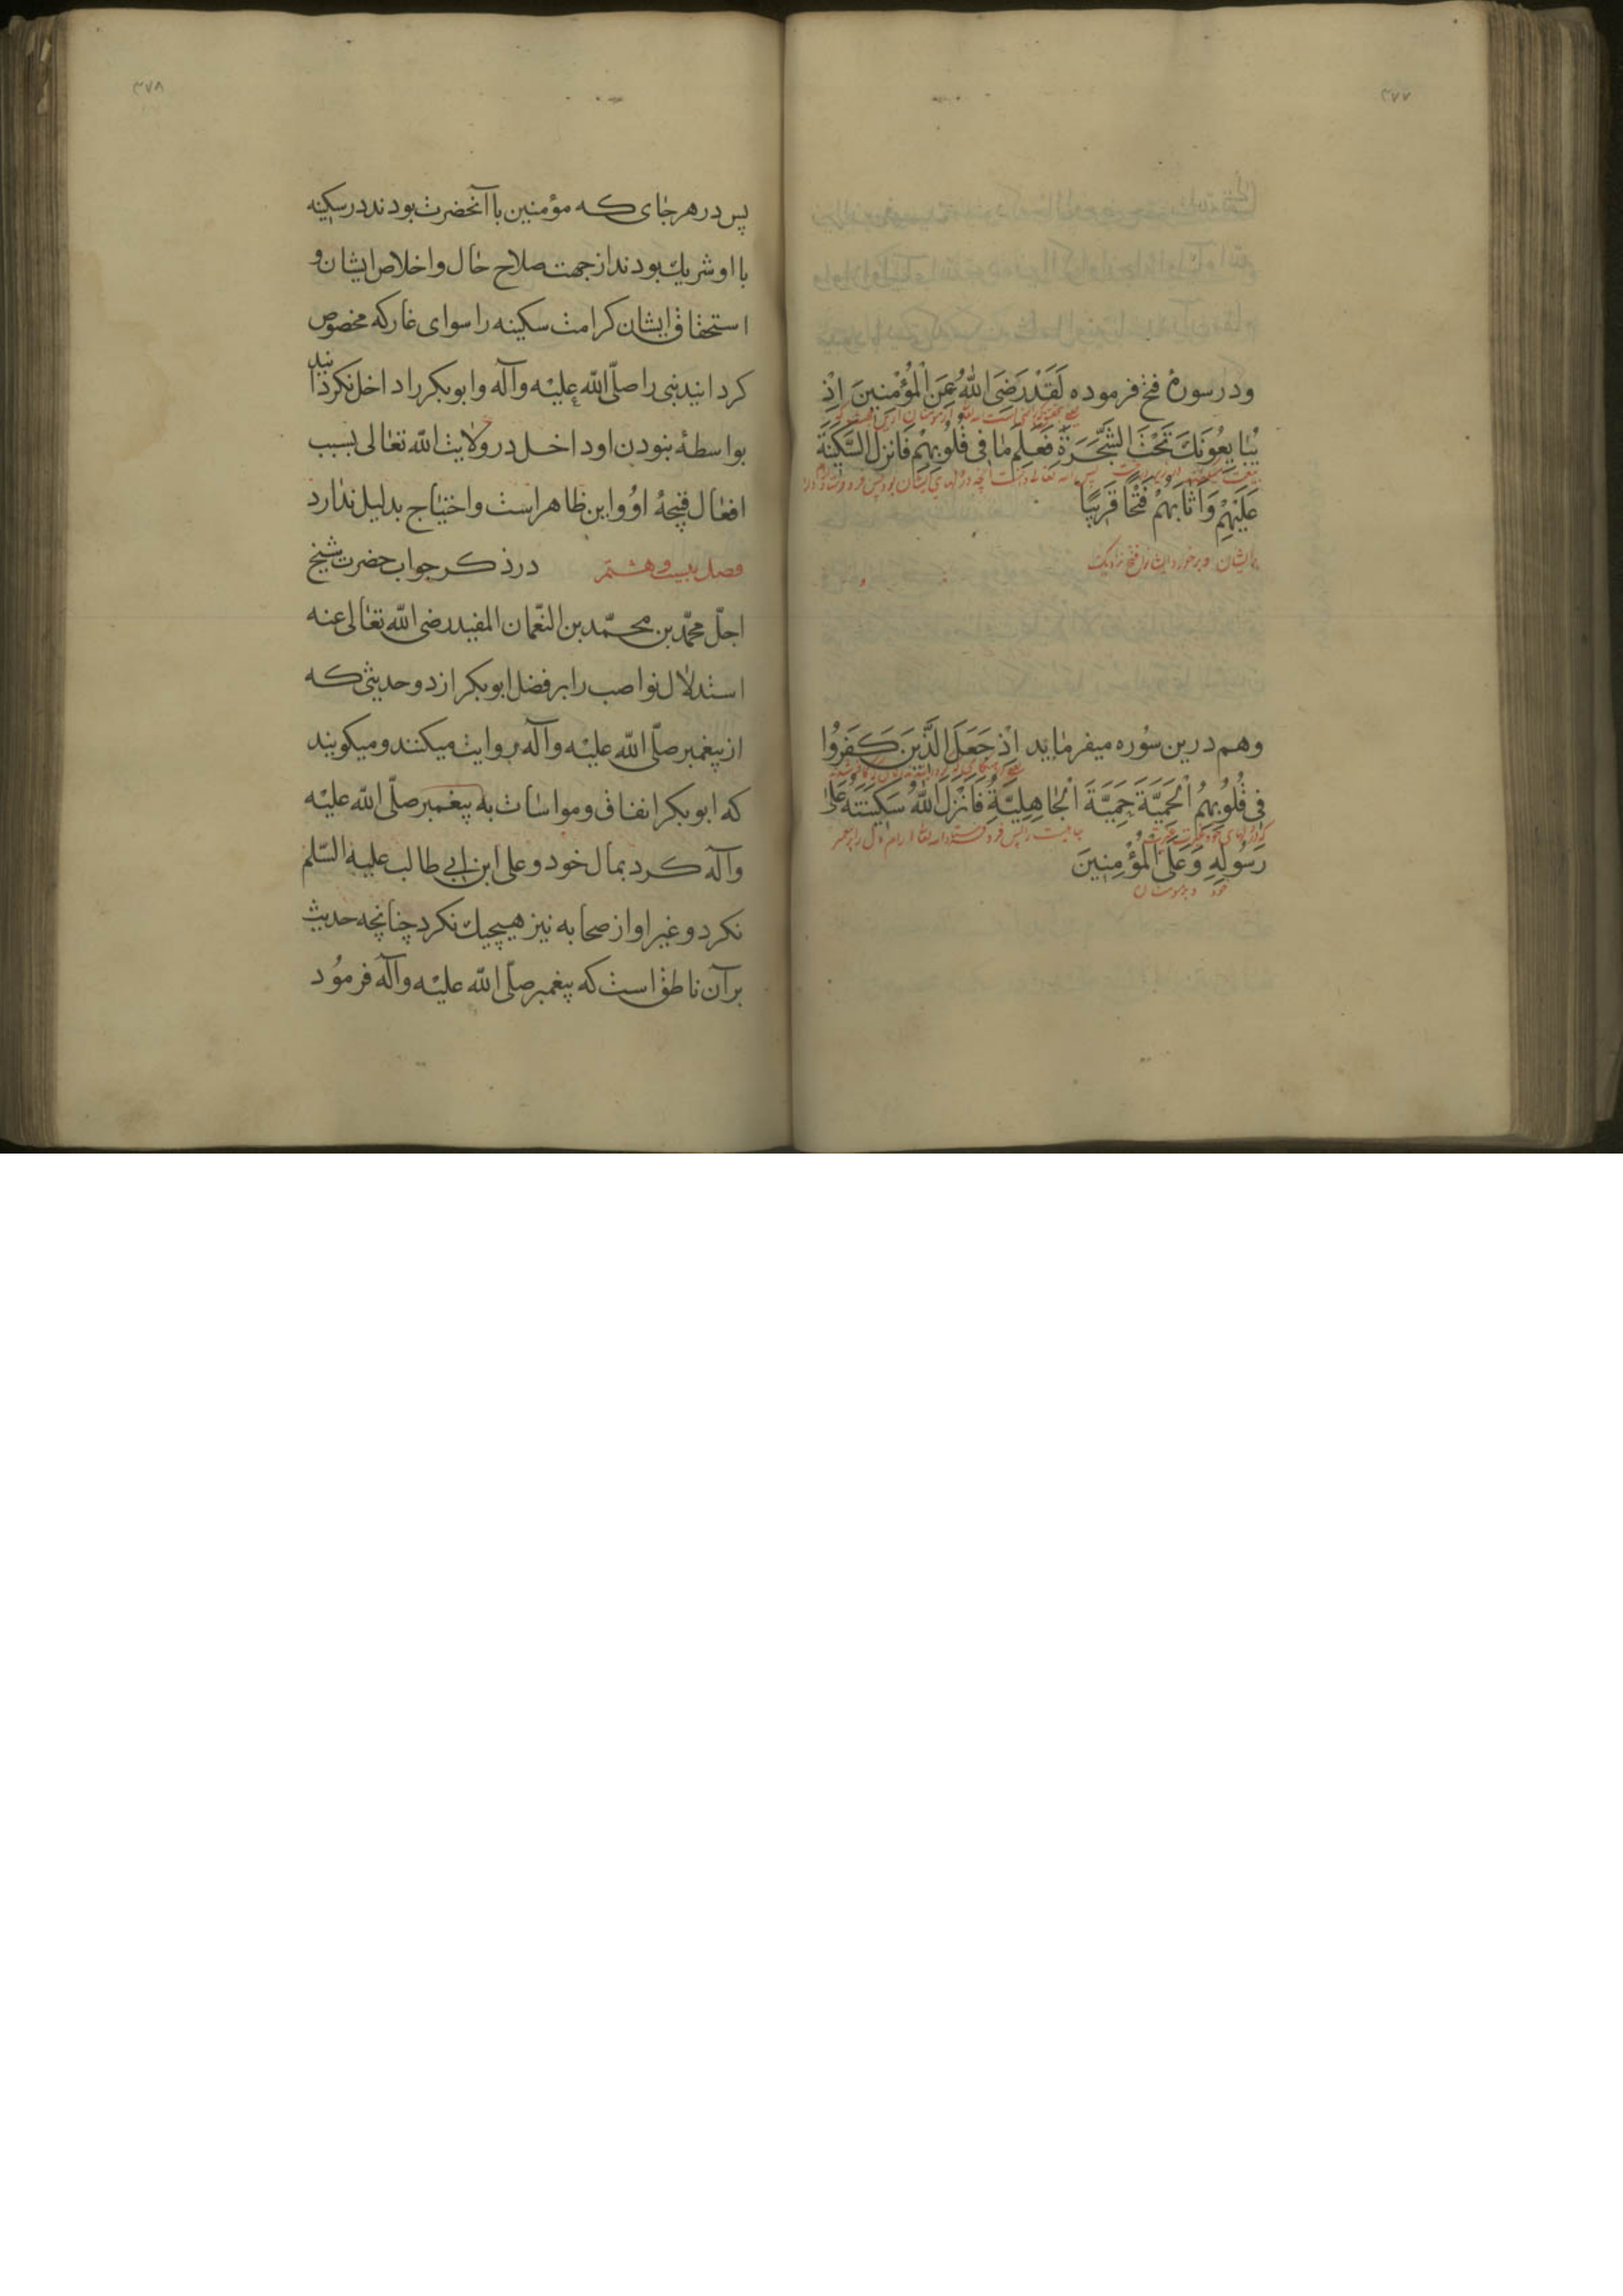 ۳۷۷
ودر سورهٔ فتح فرموده لَقَدْ رَضِیَ اللهُ عَنِ الْمُؤْمِنِینَ اِذْ
یُبَایِعُونَكَ تَحْتَ الشَّجَرَةِ فَعَلِمَ مٰا فی قُلُوبِهِمْ فَاَنزلَ السَّكینَةَ
بیعت پس الله تعالی دانست آنچه در دلهای ایشان بود پس فرو فرستاد
عَلَیْهِمْ وَاَثَابَهُمْ فَتْحًا قَرِیبًا
برایشان فتح نزدیک
وهم درین سوره میفرماید اِذْ جَعَلَ الَّذینَ كَفَرُوا
فی قُلُوبِهِمُ الْحَمِیَّةَ حَمِیَّةَ الْجٰاهِلِیَّةِ فَاَنْزَلَ اللهُ سَكینَتَهُ عَلیٰ
جاهلیت را پس فرو فرستاد الله تعالی آرام دل را بر
رَسُولِهِ وَعَلَی الْمُؤْمِنِینَ
خود و بر مومنان
۳۷۸
پس در هر جٰای که مؤمنین با آنحضرت بودند در سکینه
با او شریك بودند از جهت صلاح حٰال و اخلاص ایشان و
استحقاق ایشان کرامت سکینه را سوای غار که مخصوص
کردانیدنبی را صلّی الله علیه وآله وابوبکر را داخل نکردانید
بواسطهٔ نبودن او داخل در ولایت الله تعالی بسبب
افعٰال قبیحهٔ او واین ظاهر است واحتیٰاج بدلیل ندٰارد
فصل بیست و هشتم در ذکر جواب حضرت شیخ
اجلّ محمّد بن محمّد بن النّعمان المفید رضی الله تعٰالی عنه
استدلال نواصب را بر فضل ابوبکر از دو حدیثی که
از پیغمبر صلّی الله علیه وآله روایت میکنند ومیکویند
که ابوبکر انفاق ومواسات به پیغمبر صلّی الله علیه
وآله کرد بمال خود وعلی ابن ابی طالب علیه السّلم
نکرد وغیر او از صحابه نیز هیچیك نکرد چنانچه حدیث
بر آن ناطق است که پیغمبر صلّی الله علیه وآله فرمُود